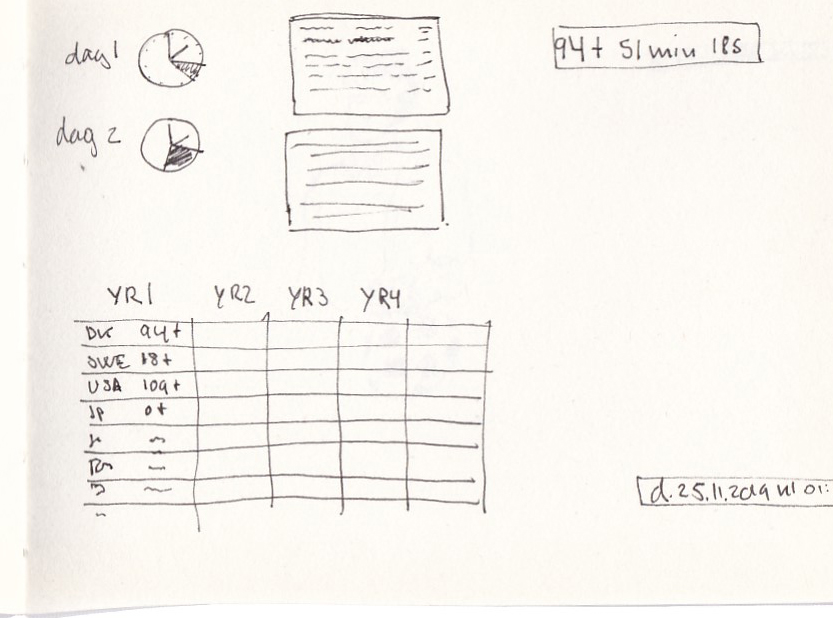 dag 1
94t 51min 18s
dag 2
YR1 YR2 YR3 YR4
DK 94t
SWE 18t
USA 109t
JP 0t
d. 25.11.2019 kl 01: